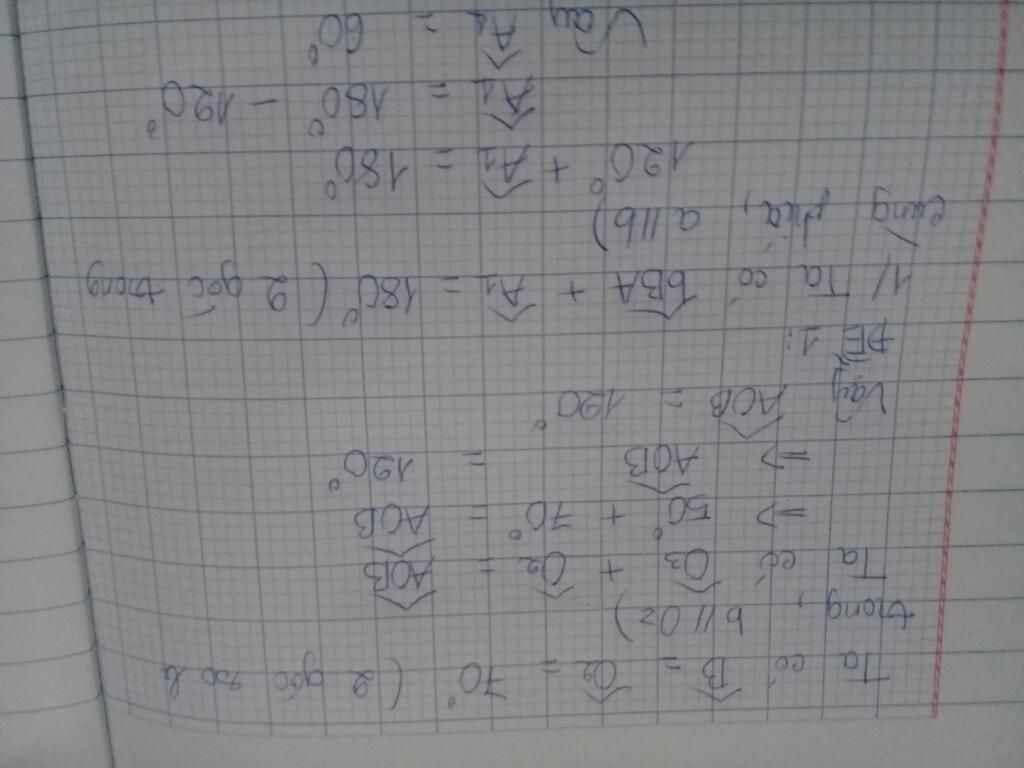 Ta có B̂ = Ô₂ = 70° ( 2 góc so le
trong, b // Oz)
Ta có Ô₃ + Ô₂ = AOB
=> 50° + 70° = AOB
=> AOB = 120°
Vậy AOB = 120°
ĐỀ 1:
1/ Ta có bBA + Â₁ = 180° ( 2 góc trong
cùng phía, a // b)
120° + Â₁ = 180°
Â₁ = 180° - 120°
Vậy Â₁ = 60°